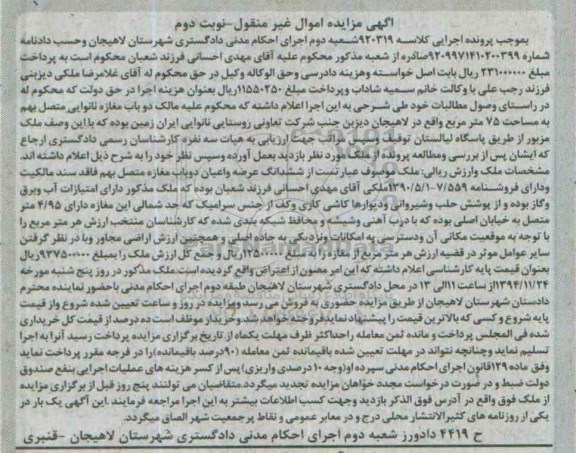 آگهی مزایده اموال غیر منقول-نوبت دوم
بموجب پرونده اجرایی کلاسه ۹۲۰۳۱۹شعبه دوم اجرای احکام مدنی دادگستری شهرستان لاهیجان وحسب دادنامه
شماره ۹۲۰۹۹۷۱۴۱۰۲۰۰۳۹۹صادره از شعبه مذکور محکوم علیه آقای مهدی احسانی فرزند شعبان محکوم است به پرداخت
مبلغ ۲۳۱۰۰۰۰۰۰ ریال بابت اصل خواسته وهزینه دادرسی وحق الوکاله وکیل در حق محکوم له آقای غلامرضا ملکی دیزبنی
فرزند رجب علی با وکالت خانم سمیه شاداب وپرداخت مبلغ ۱۱۵۵۰۳۵۰ریال بعنوان هزینه اجرا در حق دولت که محکوم له
در راستای وصول مطالبات خود طی شرحی به این اجرا اعلام داشته که محکوم علیه مالک دو باب مغازه نانوایی متصل بهم
به مساحت ۷۵ متر مربع واقع در لاهیجان دیزبن جنب شرکت تعاونی روستایی نانوایی ایران زمین بوده که با این وصف ملک
مزبور از طریق پاسگاه لیالستان توقیف وسپس مراتب جهت ارزیابی به هیات سه نفره کارشناسان رسمی دادگستری ارجاع
که ایشان پس از بررسی ومطالعه پرونده از ملک مورد نظر بازدید بعمل آورده وسپس نظر خود را به شرح ذیل اعلام داشته اند.
مشخصات ملک وارزش ریالی: ملک موصوف عبارتست از ششدانگ عرصه واعیان دوباب مغازه متصل بهم فاقد سند مالکیت
ودارای فروشنامه ۷/۵۵۹-۱۳۹۰/۵/۱ملکی آقای مهدی احسانی فرزند شعبان بوده که ملک مذکور دارای امتیازات آب وبرق
وگاز بوده و از پوشش حلب وشیروانی ودیوارها کاشی کاری وکف از جنس سرامیک که حد شمالی این مغازه دارای ۴/۹۵ متر
متصل به خیابان اصلی بوده که با درب آهنی وشیشه و محافظ شبکه بندی شده که کارشناسان منتخب ارزش هر متر مربع را
با توجه به موقعیت مکانی آن ودسترسی به امکانات ونزدیکی به جاده اصلی و همچنین ارزش اراضی مجاور وبا در نظر گرفتن
سایر عوامل موثر در قضیه ارزش هر متر مربع از مغازه را به مبلغ ۱۲۵۰۰۰۰۰ ریال و جمع کل ارزش ملک را بمبلغ ۹۳۷۵۰۰۰۰۰ریال
بعنوان قیمت پایه کارشناسی اعلام داشته که این امر مصون از اعتراض واقع گردیده است.ملک مذکور در روز پنج شنبه مورخه
۱۳۹۴/۱۱/۲۴از ساعت ۱۱الی ۱۳ در محل دادگستری شهرستان لاهیجان طبقه دوم اجرای احکام مدنی باحضور نماینده محترم
دادستان شهرستان لاهیجان از طریق مزایده حضوری به فروش می رسد ومزایده در روز و ساعت تعیین شده شروع واز قیمت
پایه شروع و کسی که بالاترین قیمت را پیشنهاد نماید فروخته خواهد شد وخریدار موظف است ده درصد از قیمت کل خریداری
شده فی المجلس پرداخت و مانده ثمن معامله را حداکثر ظرف مهلت یکماه از تاریخ برگزاری مزایده پرداخت رسید آنرا به اجرا
تسلیم نماید وچنانچه نتواند در مهلت تعیین شده باقیمانده ثمن معامله (۹۰درصد باقیمانده)را در فرجه مقرر پرداخت نماید
وفق ماده ۱۲۹قانون اجرای احکام مدنی سپرده او(وجه ۱۰ درصدی واریزی) پس از کسر هزینه های عملیات اجرایی بنفع صندوق
دولت ضبط و در صورت درخواست مجدد خواهان مزایده تجدید میگردد.متقاضیان می توانند پنج روز قبل از برگزاری مزایده
از ملک فوق واقع در آدرس فوق الذکر بازدید وجهت کسب اطلاعات بیشتر به این اجرا مراجعه فرمایند .این آگهی یک بار در
یکی از روزنامه های کثیرالانتشار محلی درج و در معابر عمومی و نقاط پرجمعیت شهر الصاق میگردد.
ح ۴۴۱۹ دادورز شعبه دوم اجرای احکام مدنی دادگستری شهرستان لاهیجان -قنبری